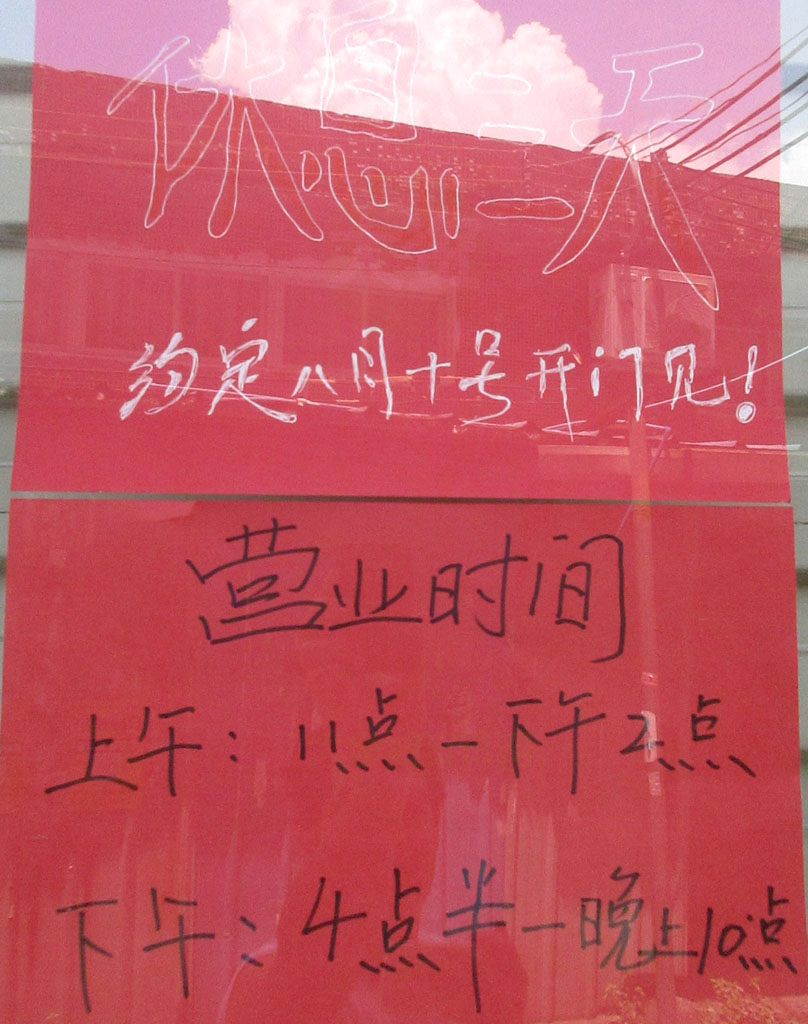 休息三天
约定八月十号开门见！
营业时间
上午：11点－下午2点
下午：4点半－晚上10点